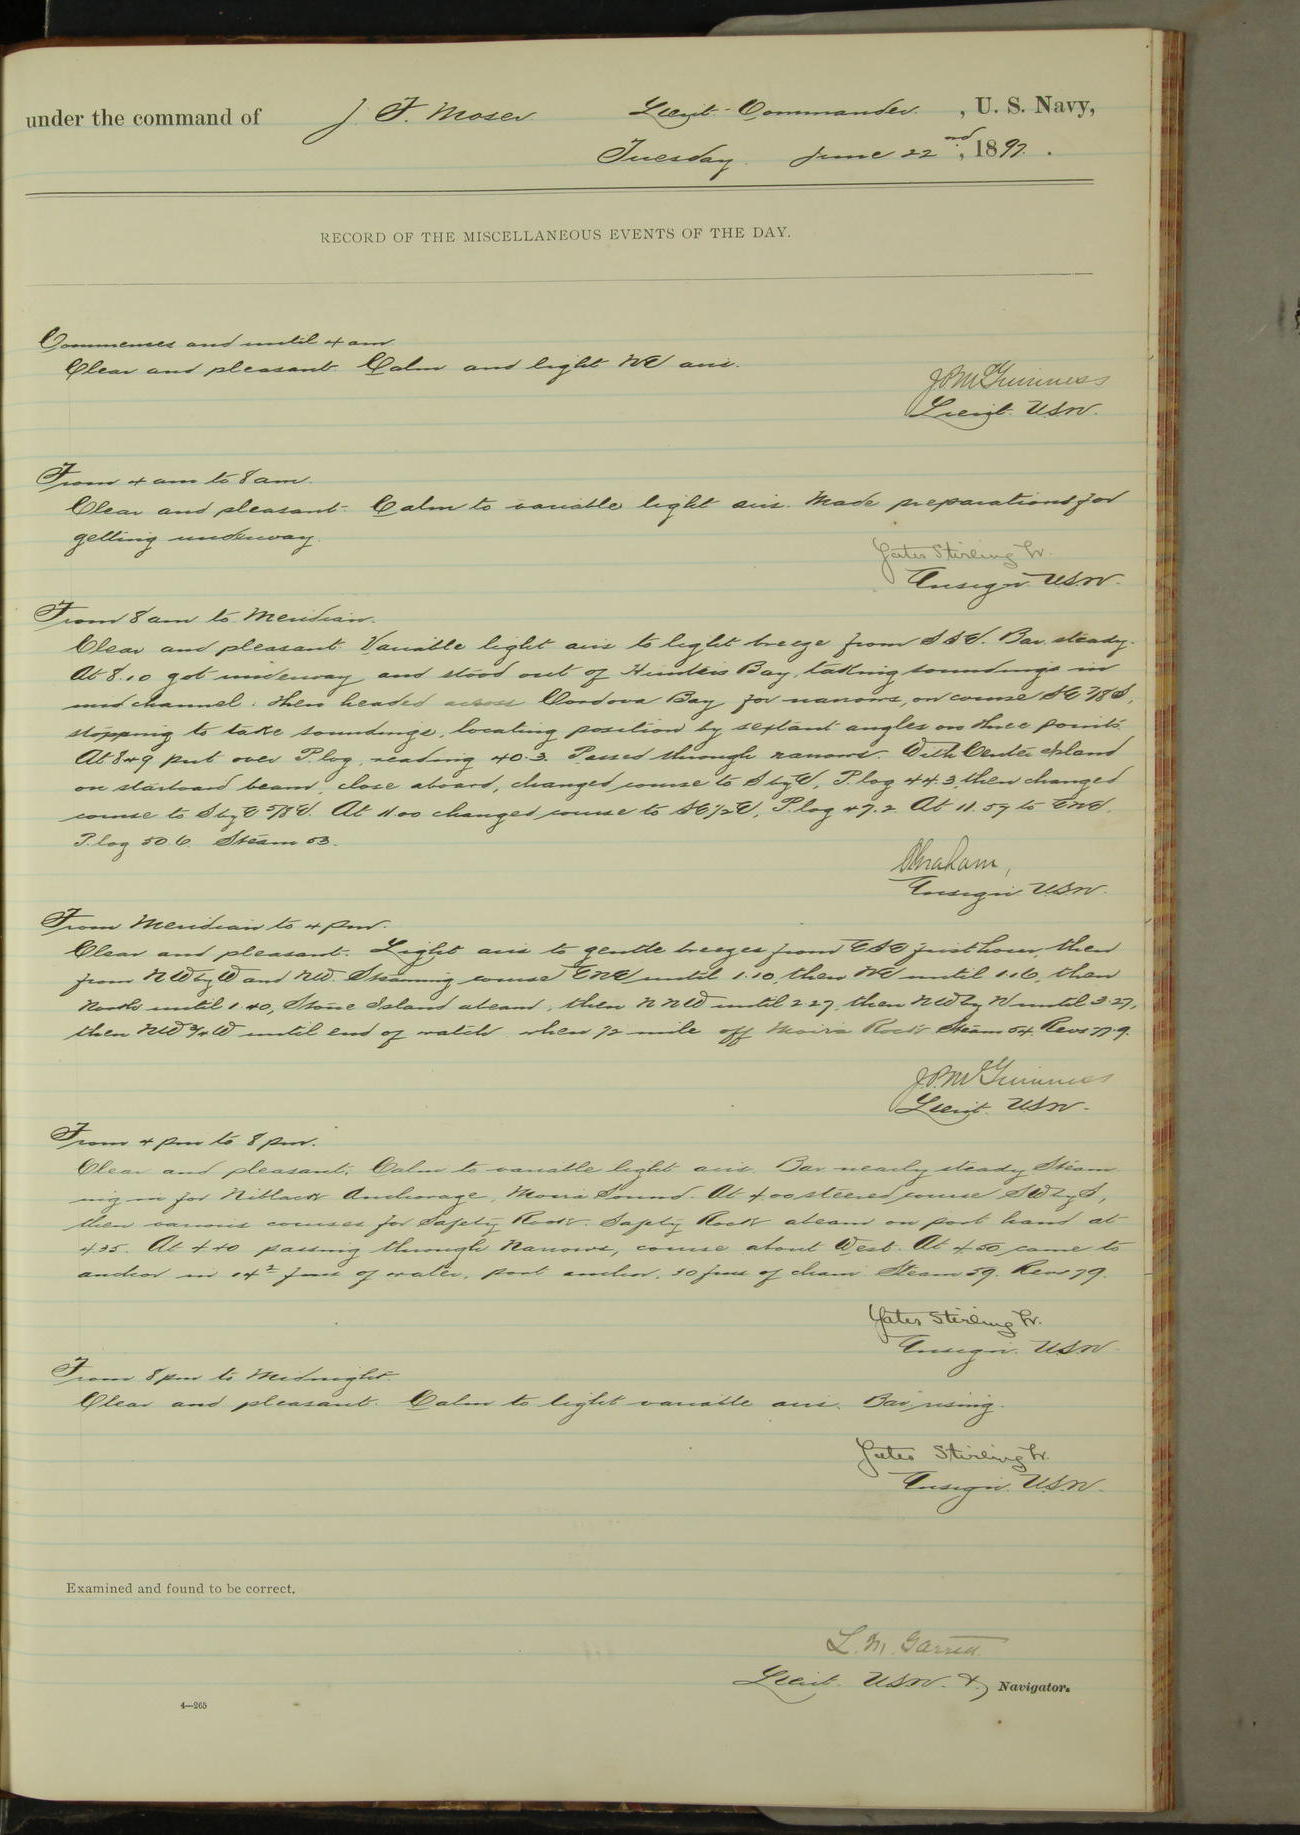 under the command of J. F. Moser Lieut-Commander. , U. S. Navy,
Tuesday. June 22nd, 1897.
RECORD OF THE MISCELLANEOUS EVENTS OF THE DAY.
Commences and until 4 am
Clear and pleasant. Calm and light NE airs.
J.P. McGuinness
Lieut. U.S.N.
From 4 am to 8 am.
Clear and pleasant. Calm to variable light airs. Made preparations for
getting underway.
Yates Stirling Jr.
Ensign U.S.N.
From 8 am to Meridian.
Clear and pleasant. Variable light airs to light breeze from SSE. Bar. steady.
At 8.10 got underway and stood out of Hunters Bay, taking soundings in
mid channel. Then headed across Cordova Bay for narrows, on course SE 7/8 S,
stopping to take soundings, locating position by sextant angles on three points.
At 8.49 put over P. log, reading 40.3. Passed through narrows. With Center Island
on starboard beam, close aboard, changed course to S by E, P. log 44.3, then changed
course to S by E 7/8 E. At 11.00 changed course to SE 1/2 E, P. log 47.2. At 11.57 to ENE.
P. log 50.6. Steam 53.
Ensign U.S.N.
From Meridian to 4 pm.
Clear and pleasant. Light airs to gentle breezes from ESE first hour, then
from NW by W and NW. Steaming course ENE until 1.10, then NE until 1.16, then
North until 1.40, Stone Island abeam, then NNW until 2.27, then NW by N until 3.27,
then NW 3/4 W until end of watch when 1/2 mile off Moira Rock. Steam 54. Revs 77.9.
J.P. McGuinness
Lieut. U.S.N.
From 4 pm to 8 pm.
Clear and pleasant. Calm to variable light airs. Bar nearly steady. Steam
ing in for Niblack Anchorage, Moira Sound. At 4.00 steered course SW by S,
then various courses for Safety Rock. Safety Rock abeam on port hand at
4.35. At 4.40 passing through Narrows, course about West. At 4.50 came to
anchor in 14 1/2 fms of water, port anchor, 30 fms of chain. Steam 59. Revs 79.
Yates Stirling Jr.
Ensign. U.S.N.
From 8 pm to Midnight
Clear and pleasant. Calm to light variable airs. Bar. rising.
Yates Stirling Jr.
Ensign. U.S.N.
Examined and found to be correct.
L. M. Garrett.
Lieut. U.S.N. & Navigator.
4—265